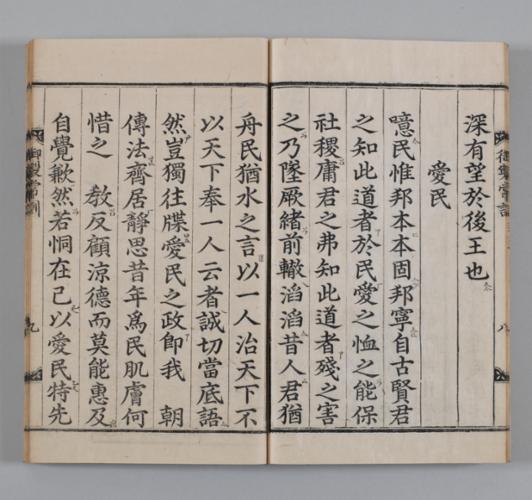 深有望於後王也
愛民
噫民惟邦本本固邦寧自古賢君
之知此道者於民愛之恤之能保
社稷庸君之弗知此道者殘之害
之乃墜厥緖前轍滔滔昔人君猶
舟民猶水之言以一人治天下不
以天下奉一人云者誠切當底語
然豈獨往牒愛民之政卽我　朝
傳法齊居靜思昔年爲民肌膚何
惜之　敎反顧涼德而莫能惠及
自覺歉然若恫在己以愛民特先
御製常訓
八
御製常訓
九